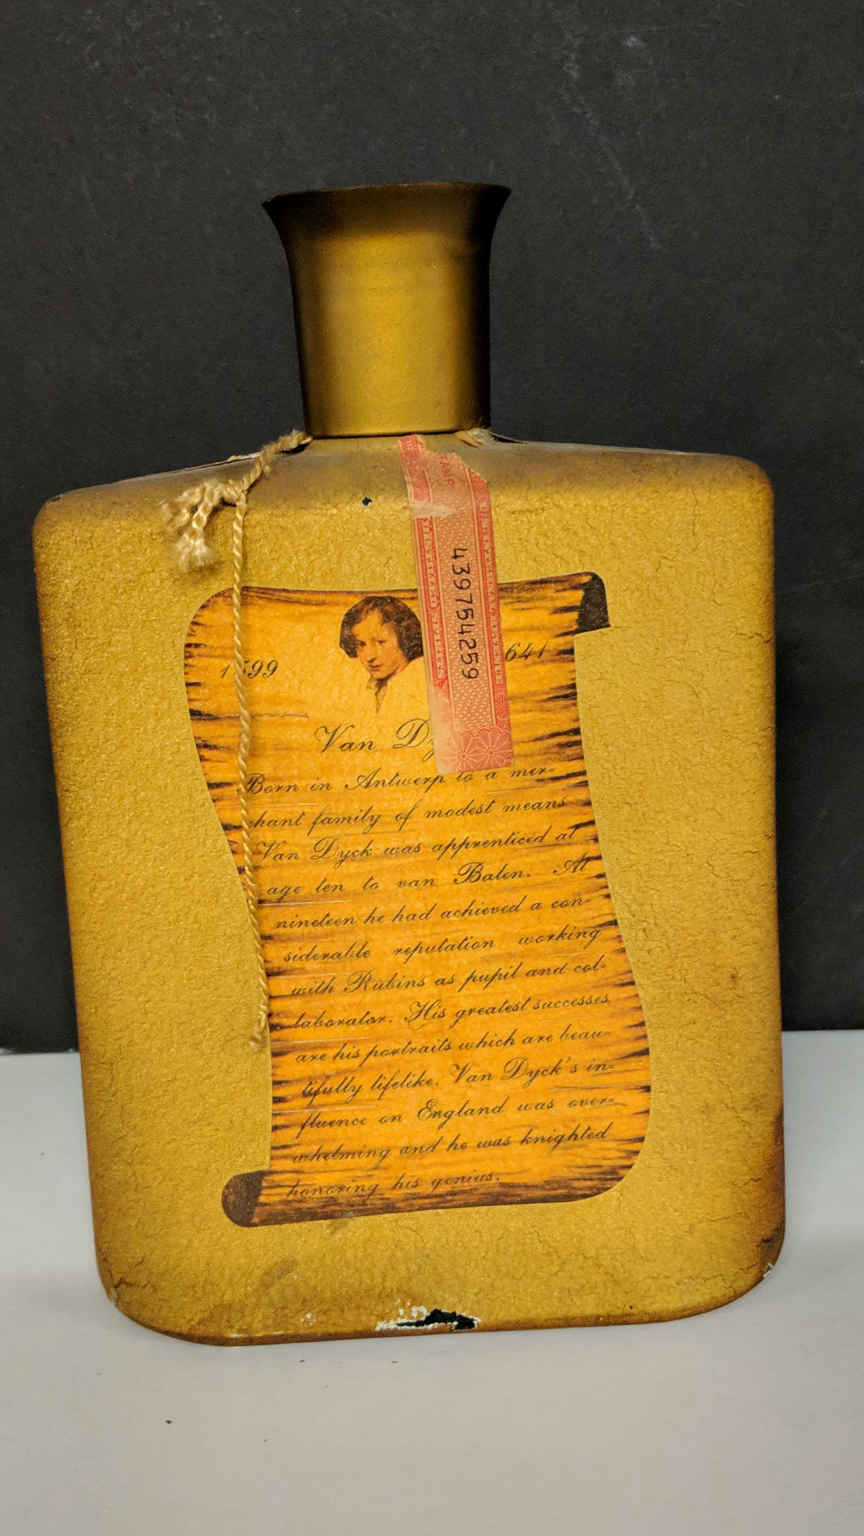 439754259
1599 641
Van Dy
Born in Antwerp to a mer-
chant family of modest means
Van Dyck was apprenticed at
age ten to van Balen. At
nineteen he had achieved a con-
siderable reputation working
with Rubins as pupil and col-
laborator. His greatest successes
are his portraits which are beau-
tifully lifelike. Van Dyck's in-
fluence on England was over-
whelming and he was knighted
honoring his genius.